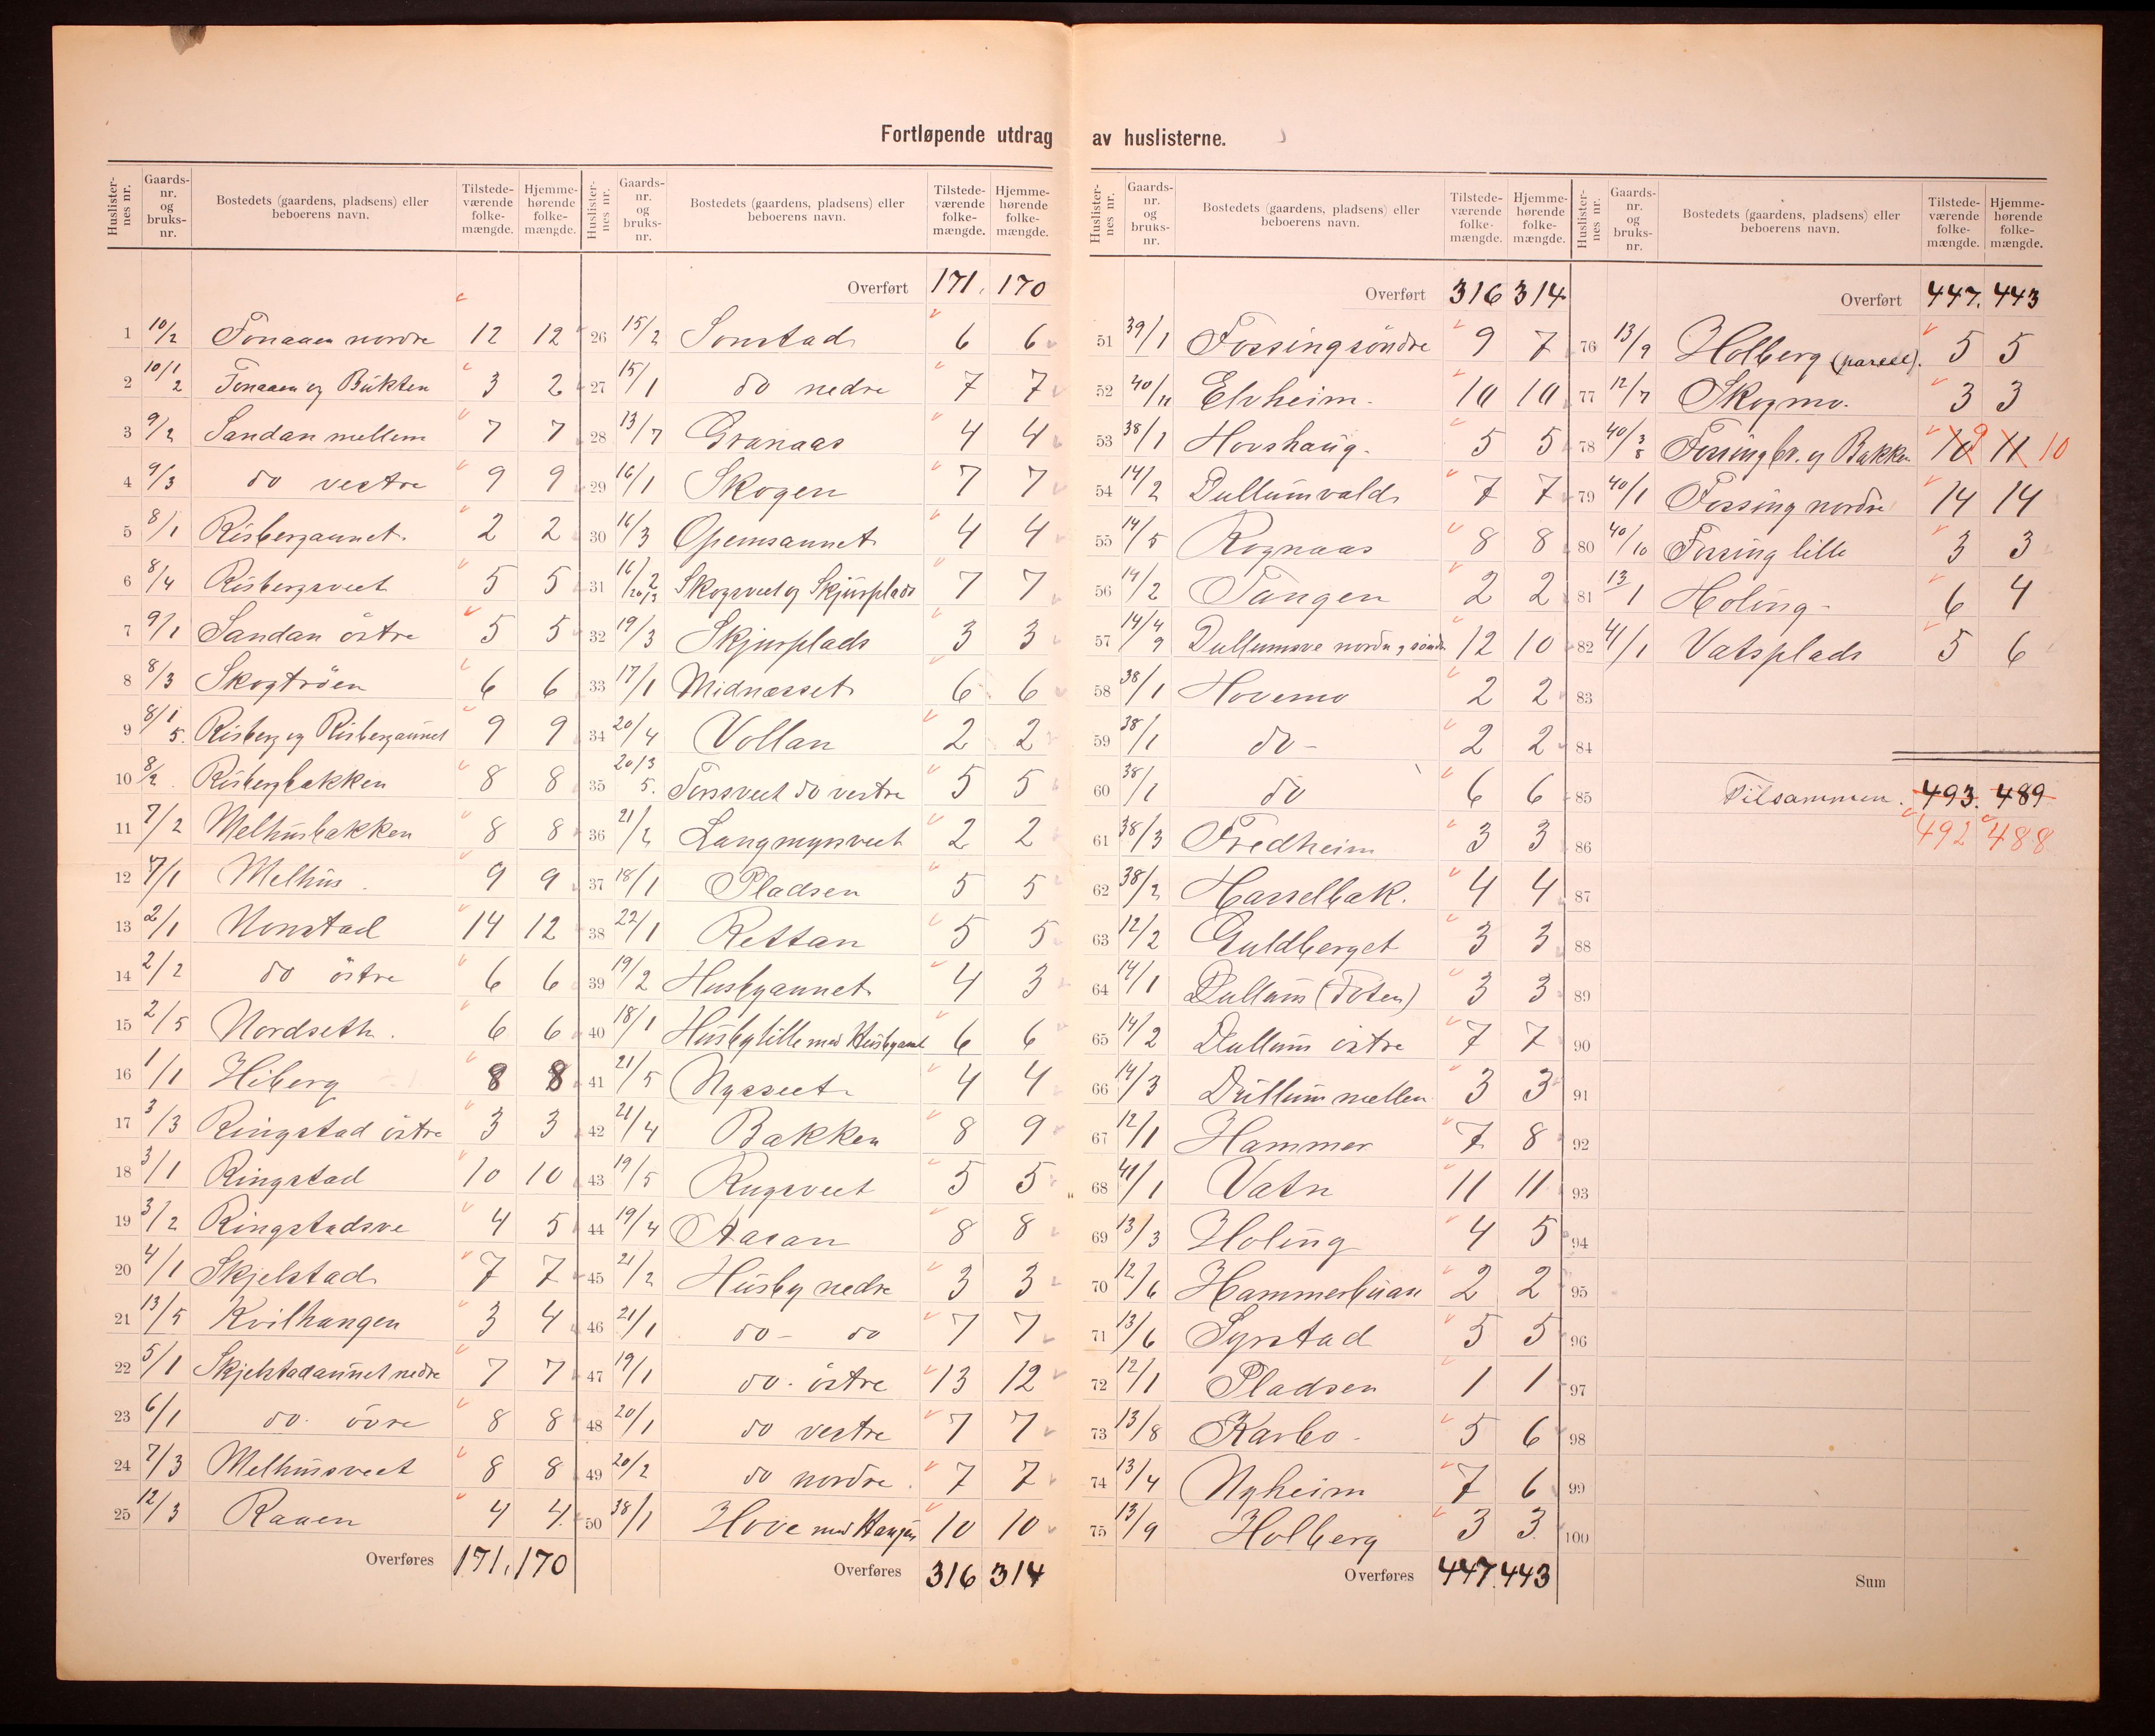 Fortløpende utdrag av huslisterne.
Huslister-nes nr. | Gaards-nr. og bruks-nr. | Bostedets (gaardens, pladsens) eller beboerens navn. | Tilstede-værende folke-mængde. | Hjemme-hørende folke-mængde.
1 10/2 Fonaaen nordre 12 12
2 10/1 2 Fonaaen og Bükten 3 2
3 9/2 Sandan mellem 7 7
4 9/3 do vestre 9 9
5 8/1 Risbergaunet. 2 2
6 8/4 Risbergsveet 5 5
7 9/1 Sandan östre 5 5
8 8/3 Skogtröen 6 6
9 8/1 5. Risberg og Risbergaunet 9 9
10 8/2 Risbergbakken 8 8
11 7/2 Melhusbakken 8 8
12 7/1 Melhus 9 9
13 2/1 Nonstad 14 12
14 2/2 do östre 6 6
15 2/5 Nordseth. 6 6
16 1/1 Hiberg 8 8
17 3/3 Ringstad östre 3 3
18 3/1 Ringstad 10 10
19 3/2 Ringstadsve 4 5
20 4/1 Skjelstad 7 7
21 13/5 Kvilhaugen 3 4
22 5/1 Skjelstadaunet nedre 7 7
23 6/1 do. övre 8 8
24 7/3 Melhusveet 8 8
25 12/3 Raaen 4 4
Overføres 171. 170
Huslister-nes nr. | Gaards-nr. og bruks-nr. | Bostedets (gaardens, pladsens) eller beboerens navn. | Tilstede-værende folke-mængde. | Hjemme-hørende folke-mængde.
Overført 171. 170
26 15/2 Sonstad 6 6
27 15/1 do nedre 7 7
28 13/7 Granaas 4 4
29 16/1 Skogen 7 7
30 16/3 Opemsaunet 4 4
31 16/2 Skogsveet og Skjurplads 7 7
32 19/3 Skjurplads 3 3
33 17/1 Midnæsset 6 6
34 20/4 Vollan 2 2
35 20/3 5. Torssveet do vestre 5 5
36 21/ Langmyrsveet 2 2
37 18/1 Pladsen 5 5
38 22/1 Rettan 5 5
39 19/2 Husbyaunet 4 3
40 18/1 Husby lille med Husbyaunet 6 6
41 21/5 Nysveet 4 4
42 21/4 Bakken 8 9
43 19/5 Rugsveet 5 5
44 19/4 Aasan 8 8
45 21/2 Husby nedre 3 3
46 21/1 do - do 7 7
47 19/1 do. östre 13 12
48 20/1 do vestre 7 7
49 20/2 do nordre. 7 7
50 38/1 Hove med Haugen 10 10
Overføres 316 314
Huslister-nes nr. | Gaards-nr. og bruks-nr. | Bostedets (gaardens, pladsens) eller beboerens navn. | Tilstede-værende folke-mængde. | Hjemme-hørende folke-mængde.
Overført 316 314
51 39/1 Fossing söndre 9 7
52 40/11 Elvheim. 10 10
53 38/1 Hovshaug. 5 5
54 14/2 Dullumvald 7 7
55 14/5 Rognaas 8 8
56 14/2 Tangen 2 2
57 14/4 9 Dullumsve nordre og söndre 12 10
58 38/1 Hovemo 2 2
59 38/1 do - 2 2
60 38/1 do 6 6
61 38/3 Fredheim 3 3
62 38/2 Hasselbak. 4 4
63 12/2 Guldberget 3 3
64 14/1 Dullum (Toten) 3 3
65 14/2 Dullum östre 7 7
66 14/3 Dullum mellem 3 3
67 12/1 Hammer 7 8
68 41/1 Vatn 11 11
69 13/3 Holing 4 5
70 12/6 Hammerbuan 2 2
71 13/6 Syrstad 5 5
72 12/1 Pladsen 1 1
73 13/8 Karlbo - 5 6
74 13/4 Nyheim 7 6
75 13/9 Holberg 3 3
Overføres 447. 443
Huslister-nes nr. | Gaards-nr. og bruks-nr. | Bostedets (gaardens, pladsens) eller beboerens navn. | Tilstede-værende folke-mængde. | Hjemme-hørende folke-mængde.
Overført 447. 443
76 13/9 Holberg (parcel). 5 5
77 12/7 Skogmo. 3 3
78 40/3 8 Fossing br. og Bakken 10 9 11 10
79 40/1 Fossing nordre 14 14
80 40/10 Fossing lille 3 3
81 13/1 Holing - 6 4
82 41/1 Vatsplads 5 6
83
84
85 Tilsammen. 493. 489
86 492 488
87
88
89
90
91
92
93
94
95
96
97
98
99
100
Sum